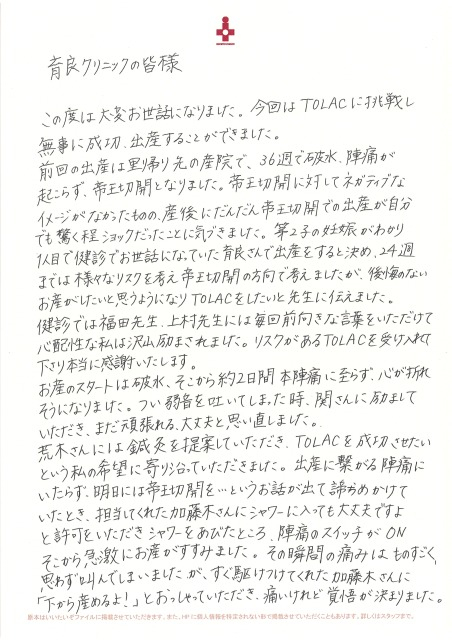 育良クリニックの皆様
この度は大変お世話になりました。今回はTOLACに挑戦し
無事に成功、出産することができました。
前回の出産は里帰り先の産院で、36週で破水、陣痛が
起こらず、帝王切開となりました。帝王切開に対してネガティブな
イメージがなかったものの、産後にだんだん帝王切開での出産が自分
でも驚く程ショックだったことに気づきました。第2子の妊娠がわかり
1人目で健診でお世話になっていた育良さんで出産をすると決め、24週
までは様々なリスクを考え帝王切開の方向で考えましたが、後悔のない
お産がしたいと思うようになりTOLACをしたいと先生に伝えました。
健診では福田先生、上村先生には毎回前向きな言葉をいただけて
心配性な私は沢山励まされました。リスクがあるTOLACを受け入れて
下さり本当に感謝いたします。
お産のスタートは破水、そこから約2日間本陣痛に至らず、心が折れ
そうになりました。つい弱音を吐いてしまった時、関さんに励まして
いただき、まだ頑張れる、大丈夫と思い直しました。
荒木さんには鍼灸を提案していただき、TOLACを成功させたい
という私の希望に寄り沿っていただきました。出産に繋がる陣痛に
いたらず、明日には帝王切開を…というお話が出て諦めかけて
いたとき、担当してくれた加藤木さんにシャワーに入っても大丈夫ですよ
と許可をいただきシャワーをあびたところ、陣痛のスイッチがON
そこから急激にお産がすすみました。その瞬間の痛みはものすごく
思わず叫んでしまいましたが、すぐ駆けつけてくれた加藤木さんに
「下から産めるよ!」とおっしゃっていただき、痛いけれど覚悟が決まりました。
原本はいいたいぞファイルに掲載させていただきます。また、HPに個人情報を特定されない形で掲載させていただくこともあります。詳しくはスタッフまで。